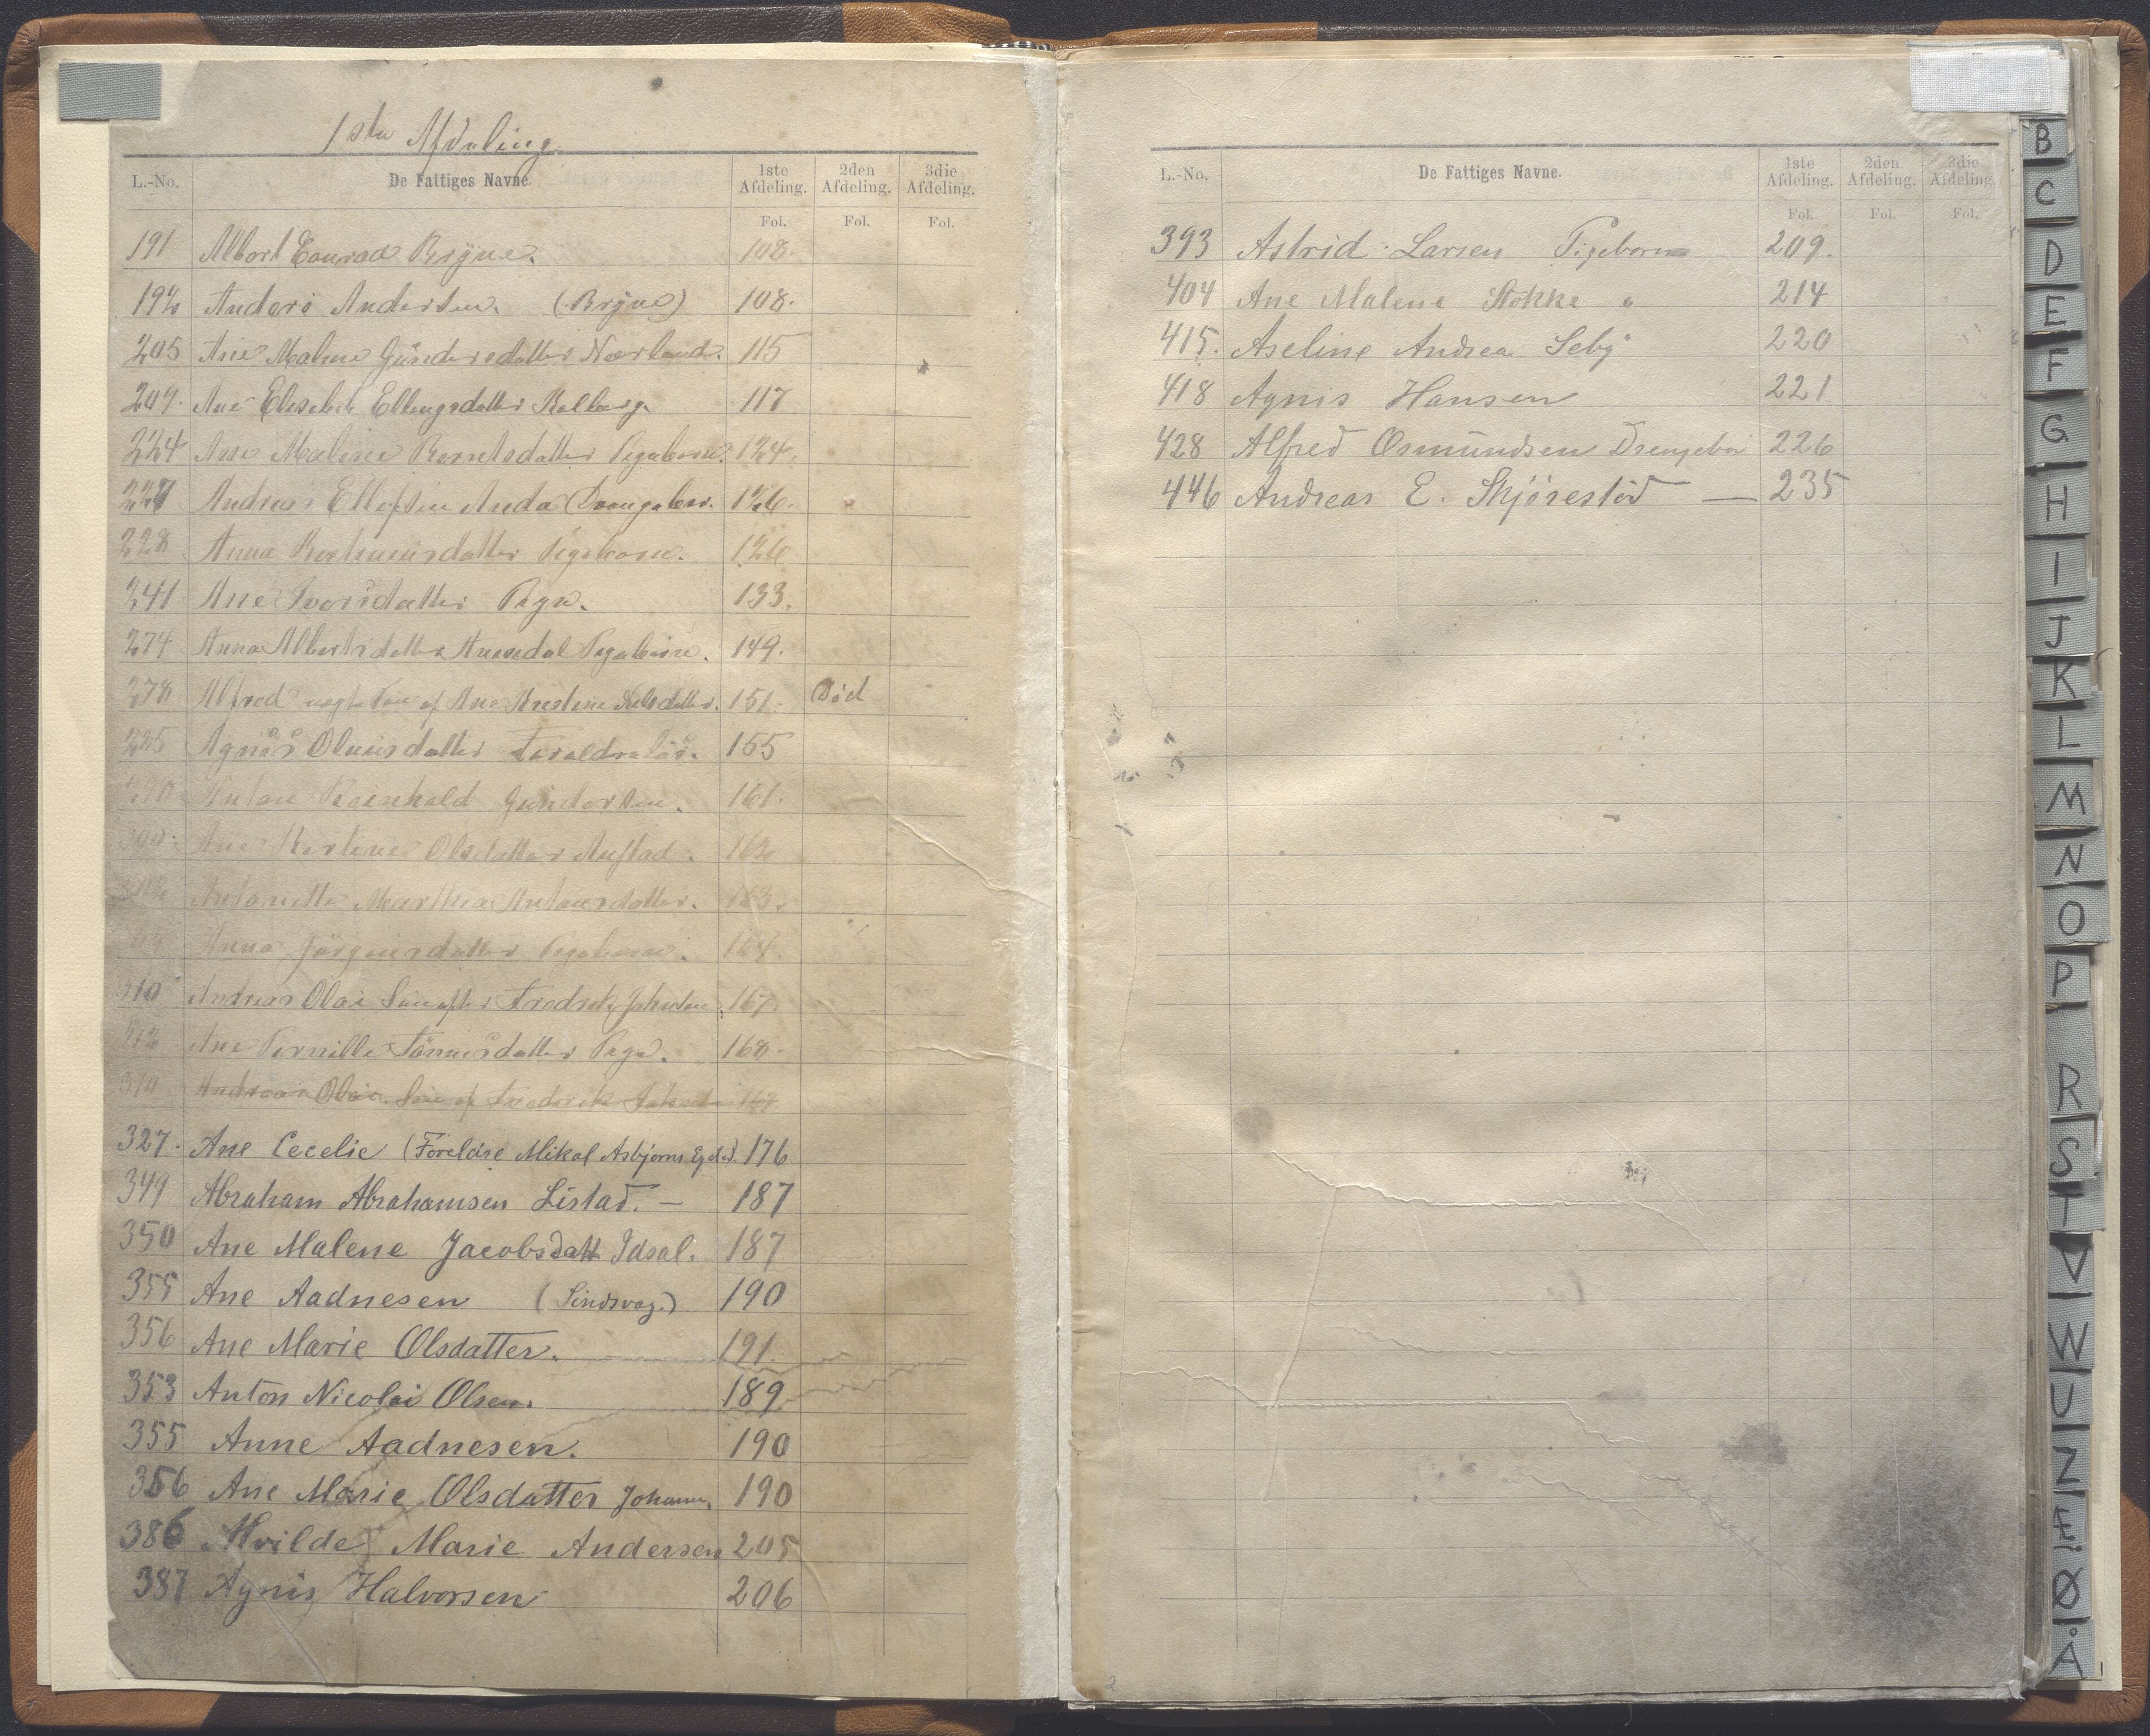 1ste Afdeling
L.-No. De Fattiges Navne. 1ste Afdeling. 2den Afdeling. 3die Afdeling.
Fol. Fol. Fol.
191 Albert Conrad Bryne. 108.
192 Anders Andersen. (Bryne) 108.
205 Ane Malene Gundersdatter Nærland. 115
209. Ane Elisabeth Ellingsdatter 117
224 Ane Malene Berntsdatter Pigebarn. 124.
227 Andreas Ellefsen Anda (Drengebar. 126.
228 Anna Pigebarn. 126
241 Ane Iversdatter Pige. 133.
274 Anna Albertsdatter Pigebarn. 149.
278 Alfred uægte Søn af Ane Kirstine Nilsdatter. 151. Død
285 Agnes Olausdatter forældreløs. 155
Anton Reinhold Gundersen. 161.
Ane Olsdatter Austad. 162
Antonette Marthea Antonsdatter. 163.
Anna Jörginsdatter Pigebarn. 164.
310 Andreas Olai Søn after Fredrik Johnsen. 167.
312 Ane Pernille Tönnesdatter Pige. 168.
310 Andreas Olai Søn af Frederik 167
327. Ane Cecelie (Foreldre Mikal Asbjorns 176
349 Abraham Abrahamsen Listad. — 187
350 Ane Malene Jacobsdatt Idsal. 187
355 Ane Aadnesen (Lindsvag.) 190
356 Ane Marie Olsdatter. 191.
353 Anton Nicolai Olsen. 189
355 Anne Aadnesen. 190
356 Ane Marie Olsdatter Johann. 190
386 Alvilde Marie Andersen 205
387 Agnis Halvorsen 206
L.-No. De Fattiges Navne. 1ste Afdeling. 2den Afdeling. 3die Afdeling.
Fol. Fol. Fol.
393 Astrid Larsen Pigebarn 209.
404 Ane Malene Stokke " 214
415. Aseline Andrea Seby 220
418 Agnis Hansen 221
428 Alfred Osmundsen Drengebar 226
446 Andreas E. Skjørestad — 235
2
B
C
D
E
F
G
H
I
J
K
L
M
N
O
P
R
S
T
V
W
U
Z
Æ
Ø
Å
1